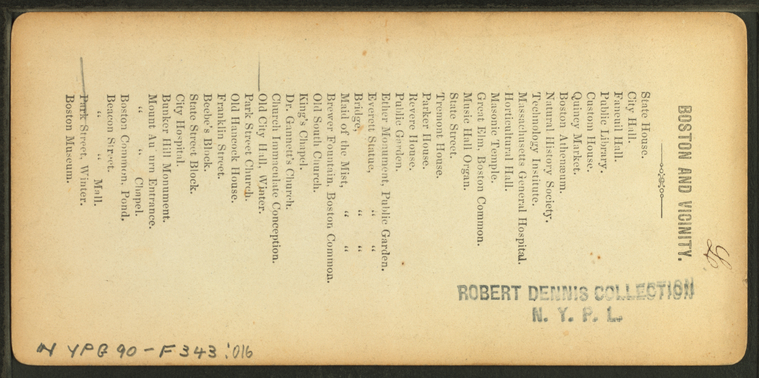 BOSTON AND VICINITY.
State House.
City Hall.
Faneuil Hall.
Public Library.
Custom House.
Quincy Market.
Boston Athenæum.
Natural History Society.
Technology Institute.
Massachusetts General Hospital.
Horticultural Hall.
Masonic Temple.
Great Elm, Boston Common.
Music Hall Organ.
State Street.
Tremont House.
Parker House.
Revere House.
Public Garden.
Ether Monument, Public Garden.
Everett Statue, " "
Bridge, " "
Maid of the Mist, " "
Brewer Fountain, Boston Common.
Old South Church.
King's Chapel.
Dr. Gannet's Church.
Church Immaculate Conception.
Old City Hall, Winter.
Park Street Church.
Old Hancock House.
Franklin Street.
Beebe's Block.
State Street Block.
City Hospital.
Bunker Hill Monument.
Mount Auburn Entrance.
" " Chapel.
Boston Common, Pond.
Beacon Street.
" " Mall.
Park Street, Winter.
Boston Museum.
ROBERT DENNIS COLLECTION
N. Y. P. L.
N YPG 90-F343:016